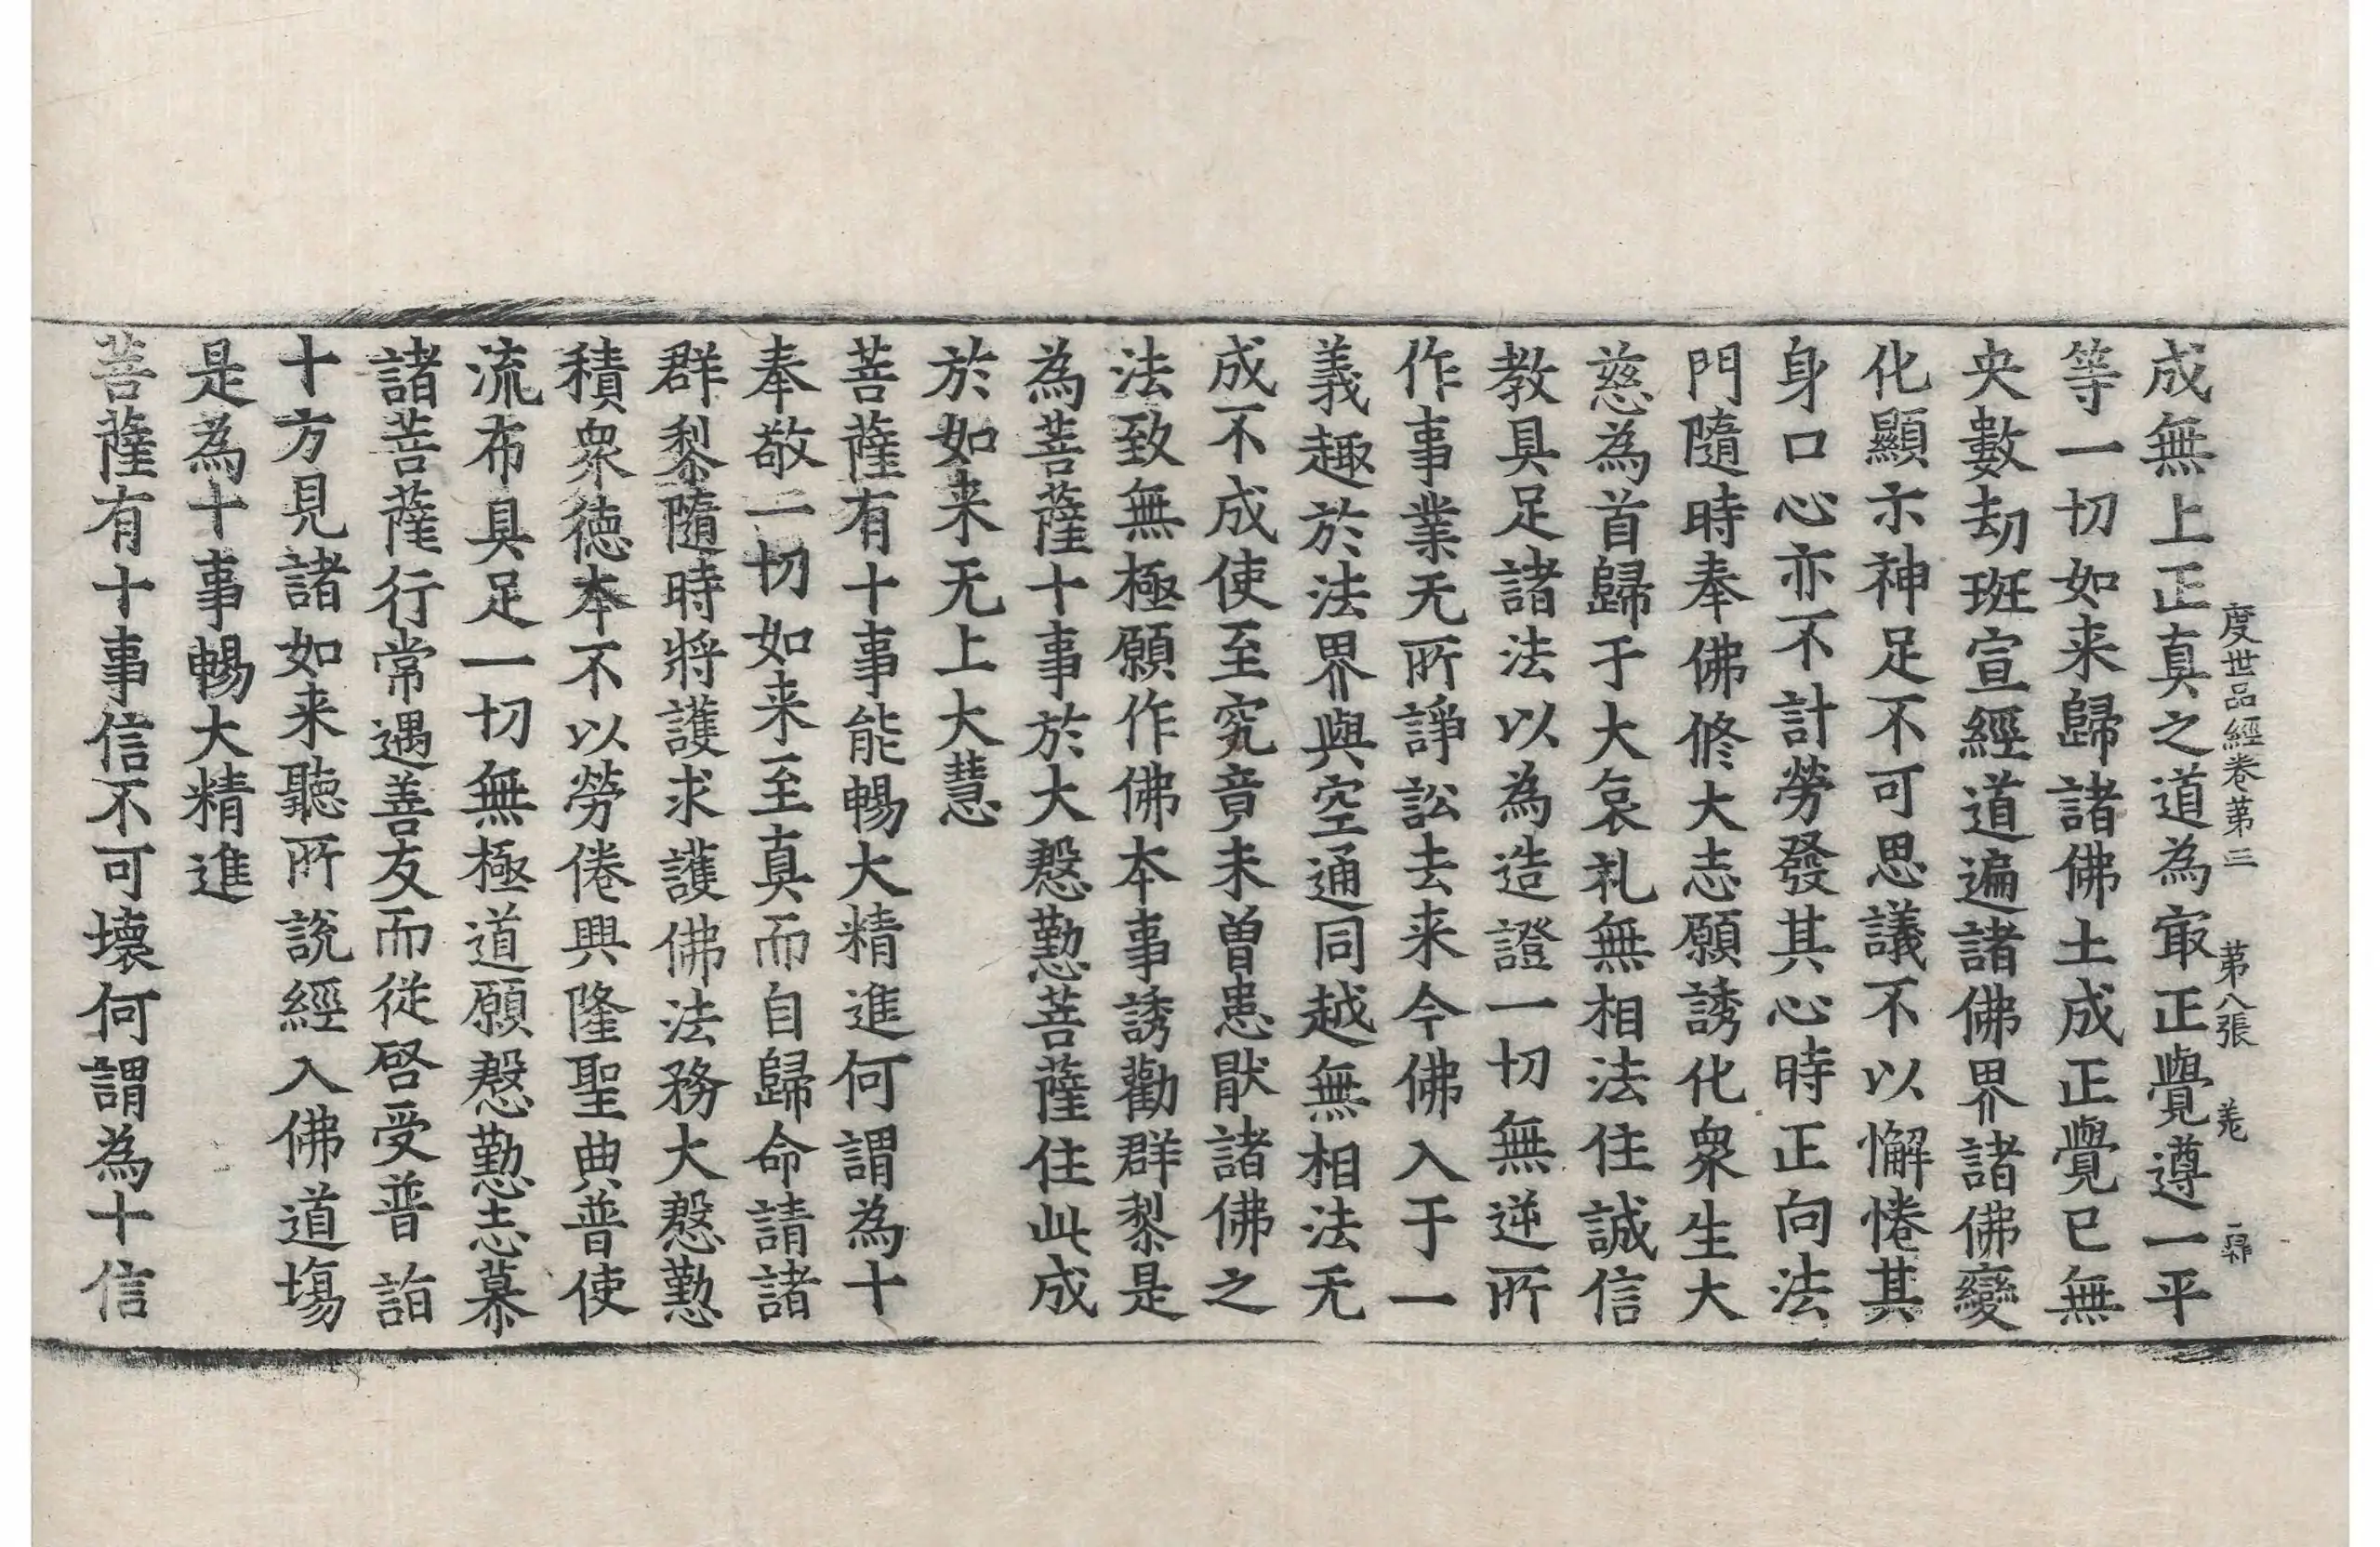 度世品經卷第三 第八張 羌
成無上正真之道為㝡正覺遵一平
等一切如来歸諸佛土成正覺已無
央數劫班宣經道遍諸佛界諸佛變
化顯示神足不可思議不以懈惓其
身口心亦不計勞發其心時正向法
門隨時奉佛修大志願誘化衆生大
慈為首歸于大哀礼無相法住誠信
教具足諸法以為造證一切無逆所
作事業无所諍訟去来今佛入于一
義趣於法界與空通同越無相法无
成不成使至究竟未曽患猒諸佛之
法致無極願作佛本事誘勸群黎是
為菩薩十事於大慇懃菩薩住此成
於如来无上大慧
菩薩有十事能暢大精進何謂為十
奉敬一切如来至真而自歸命請諸
群黎隨時將護求護佛法務大慇懃
積衆徳本不以勞倦興隆聖典普使
流布具足一切無極道願慇懃志慕
諸菩薩行常遇善友而從啓受普詣
十方見諸如来聽所說經入佛道場
是為十事暢大精進
菩薩有十事信不可壞何謂為十信